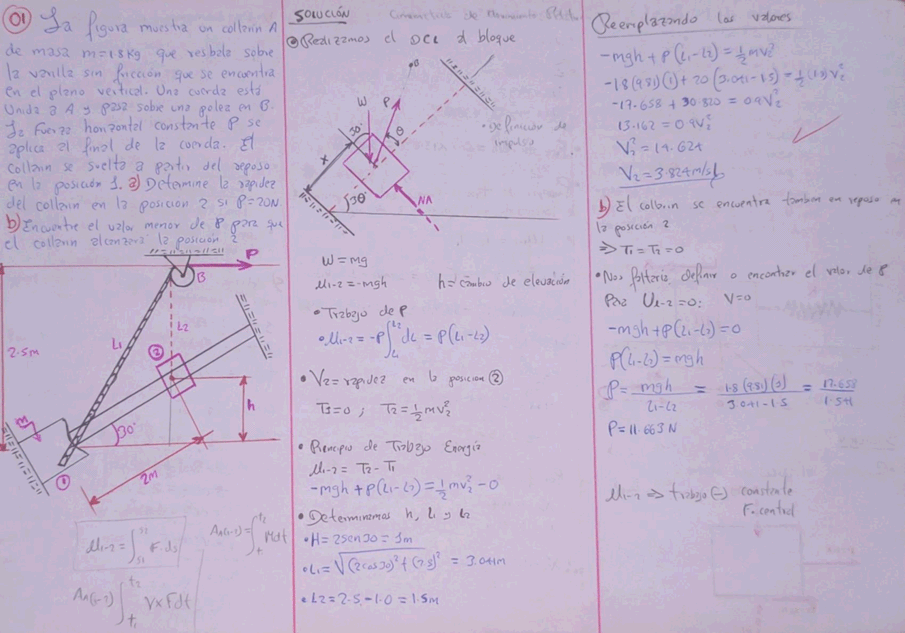 01 La figura muestra un collarín A
de masa m=1.8kg que resbala sobre
la varilla sin fricción que se encuentra
en el plano vertical. Una cuerda está
Unida a A y pasa sobre una polea en B.
La Fuerza horizontal constante P se
aplica al final de la cuerda. El
collarin se suelta a partir del reposo
en la posición 1. a) Determine la rapidez
del collarin en la posicion 2 si P=20N
b) Encuentre el valor menor de P para que
el collarin alcanzara la posición 2
P
B
L1
L2
2.5m
2
h
30°
1
2m
U1-2 = ∫ F.ds
s1
t2
An(1-2) = ∫ Mdt
t1
An(1-2) ∫ V×Fdt
t2
t1
SOLUCIÓN
Realizamos el DCL al bloque
B
W
P
30°
θ
x
Definición de
impulso
NA
30°
W = mg
U1-2 = -mgh h = cambio de elevación
• Trabajo de P
• U1-2 = -P∫ dL = P(L1-L2)
L2
L1
• V2 = rapidez en la posicion 2
T1=0 ; T2 = 1/2 mv2²
• Principio de Trabajo Energía
U1-2 = T2 - T1
-mgh + P(L1-L2) = 1/2 mv2² - 0
• Determinamos h, L1 y L2
• H = 2sen30 = 1m
• L1 = √(2cos30)² + (2.5)² = 3.041m
• L2 = 2.5 - 1.0 = 1.5m
Reemplazando los valores
-mgh + P(L1-L2) = 1/2 mv2²
-1.8(9.81)(1) + 20(3.041-1.5) = 1/2 (1.8)V2²
-17.658 + 30.820 = 0.9V2²
13.162 = 0.9V2²
V2² = 14.624
V2 = 3.824m/s
b) El collarin se encuentra tambien en reposo en
la posición 2
⇒ T1 = T2 = 0
• Nos faltaria definir o encontrar el valor de P
Para U1-2=0; V=0
-mgh + P(L1-L2) = 0
P(L1-L2) = mgh
P = mgh / L1-L2 = 1.8(9.81)(1) / 3.041-1.5 = 17.658 / 1.541
P = 11.663 N
U1-2 ⇒ trabajo(-) constante
F. central